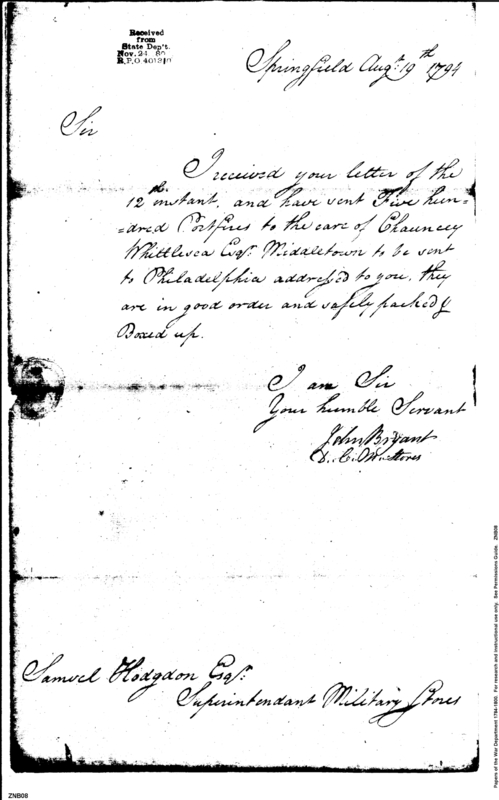 Received
from
State Dep't.
Nov. 24 80
R.P.O. 401210
Springfield Augt. 19th 1794
Sir
I received your letter of the
12th instant, and have sent Five hun=
=dred Portfires to the care of Chauncey
Whittlesca Esqr. Middletown to be sent
to Philadelphia address'd to you, they
are in good order and safely packed &
Boxed up.
I am Sir
Your humble Servant
John Bryant
D. C. M. Stores
Samuel Hodgdon Esqr.
Superintendant Military Stores
ZNB08
Papers of the War Department 1784-1800. For research and instructional use only. See Permissions Guide. ZNB08